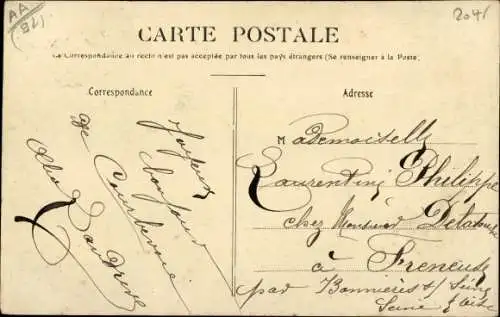 AA
(92)
2041
CARTE POSTALE
La Correspondance au recto n'est pas acceptée par tous les pays étrangers (Se renseigner à la Poste)
Correspondance
Joyeux
bonjour
de Courbevoie
Adresse
Mademoiselle
Laurentine Philippe
chez Monsieur
à Freneuse
par Bonnières s/ Seine
Seine & Oise